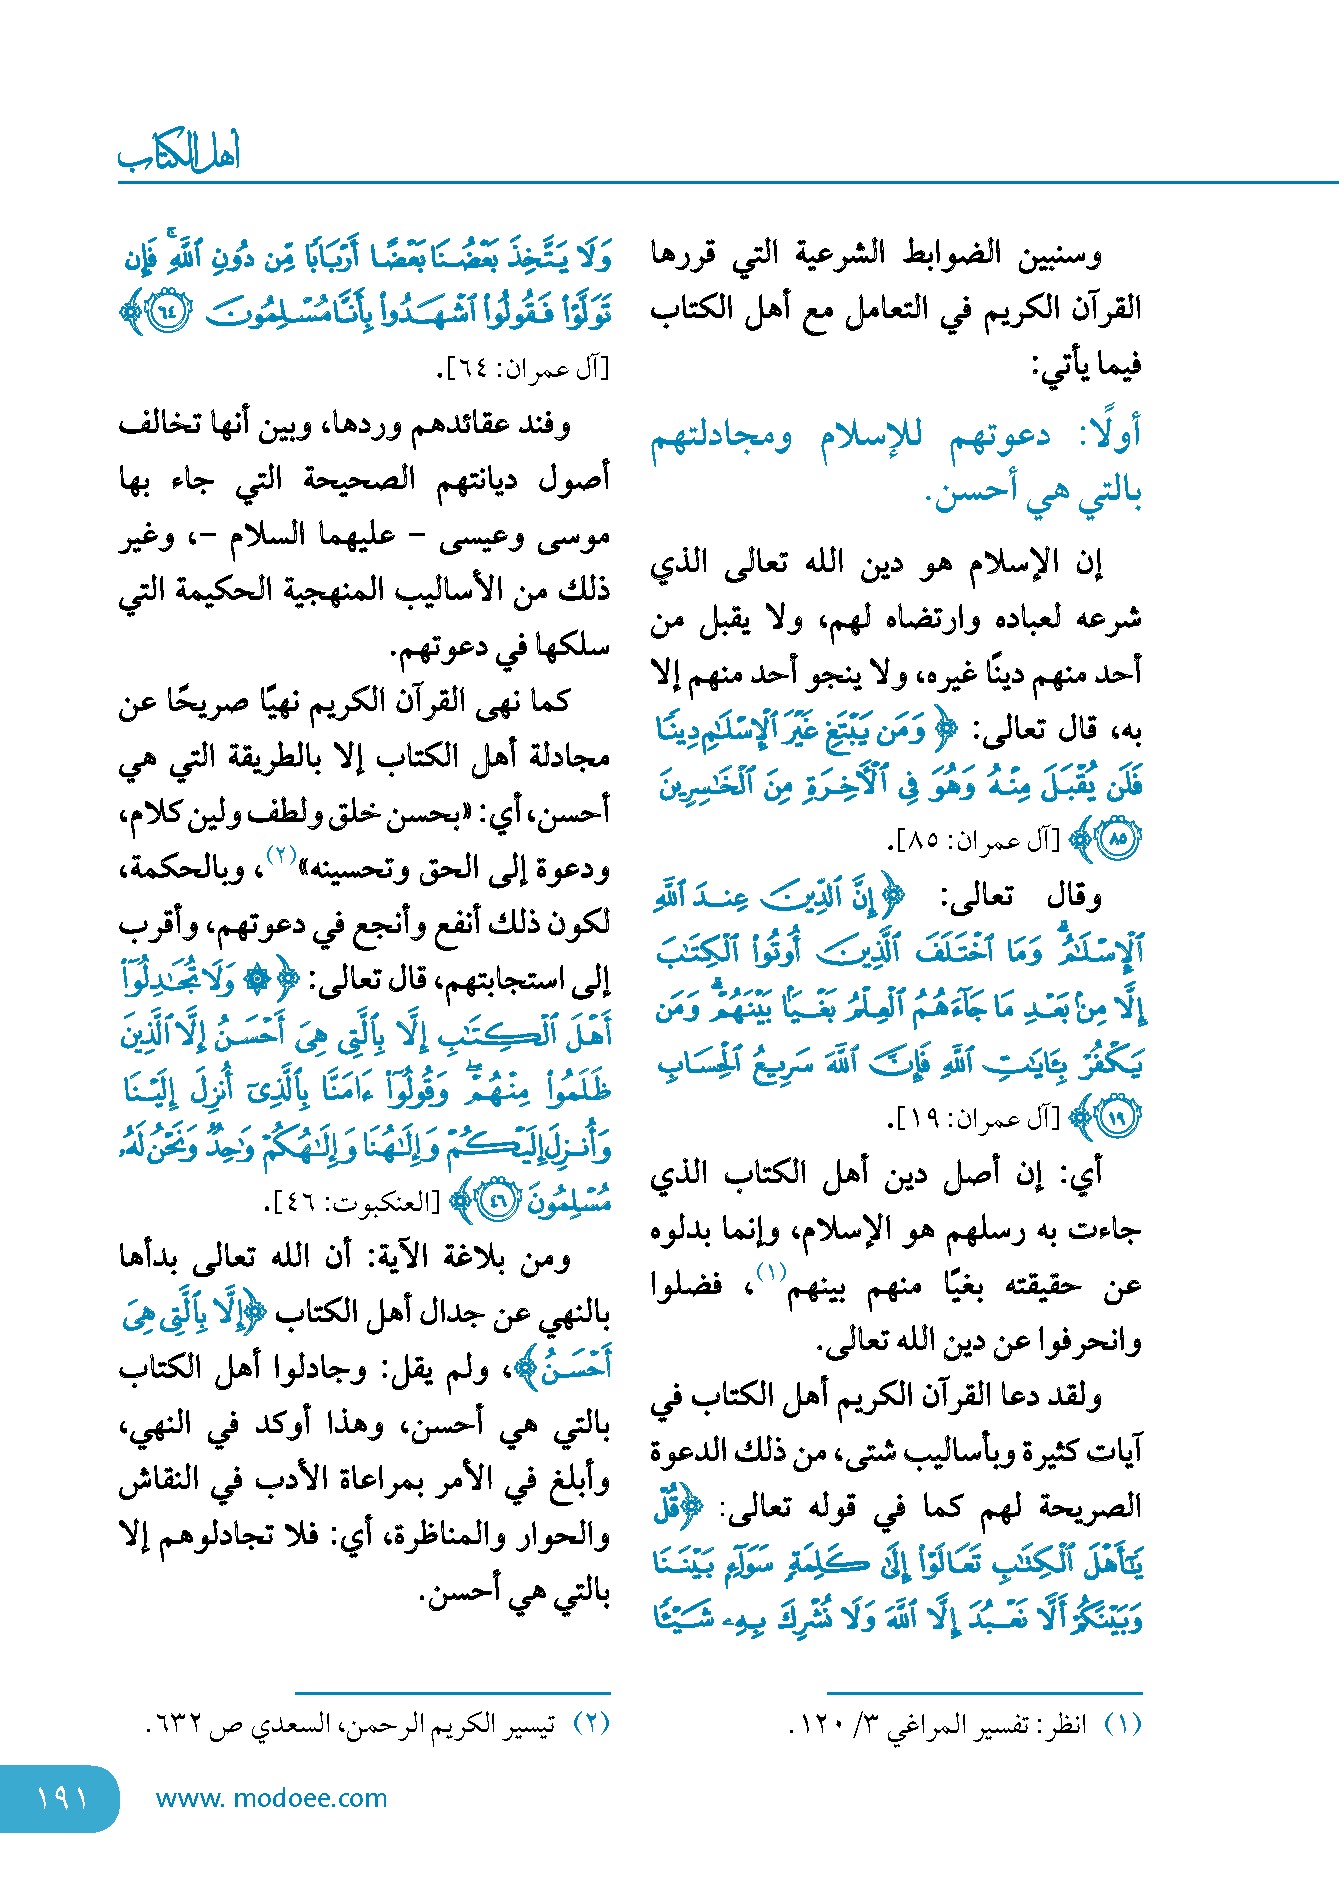 أهل الكتاب
وسنبين الضوابط الشرعية التي قررها
القرآن الكريم في التعامل مع أهل الكتاب
فيما يأتي:
أولًا: دعوتهم للإسلام ومجادلتهم
بالتي هي أحسن.
إن الإسلام هو دين الله تعالى الذي
شرعه لعباده وارتضاه لهم، ولا يقبل من
أحد منهم دينًا غيره، ولا ينجو أحد منهم إلا
به، قال تعالى: ﴿وَمَن يَبْتَغِ غَيْرَ ٱلْإِسْلَٰمِ دِينًا
فَلَن يُقْبَلَ مِنْهُ وَهُوَ فِى ٱلْأَخِرَةِ مِنَ ٱلْخَٰسِرِينَ
٨٥﴾ [آل عمران: ٨٥].
وقال تعالى: ﴿إِنَّ ٱلدِّينَ عِندَ ٱللَّهِ
ٱلْإِسْلَٰمُ ۗ وَمَا ٱخْتَلَفَ ٱلَّذِينَ أُوتُوا۟ ٱلْكِتَٰبَ
إِلَّا مِنۢ بَعْدِ مَا جَآءَهُمُ ٱلْعِلْمُ بَغْيًۢا بَيْنَهُمْ ۗ وَمَن
يَكْفُرْ بِـَٔايَٰتِ ٱللَّهِ فَإِنَّ ٱللَّهَ سَرِيعُ ٱلْحِسَابِ
١٩﴾ [آل عمران: ١٩].
أي: إن أصل دين أهل الكتاب الذي
جاءت به رسلهم هو الإسلام، وإنما بدلوه
عن حقيقته بغيًا منهم بينهم(١)، فضلوا
وانحرفوا عن دين الله تعالى.
ولقد دعا القرآن الكريم أهل الكتاب في
آيات كثيرة وبأساليب شتى، من ذلك الدعوة
الصريحة لهم كما في قوله تعالى: ﴿قُلْ
يَٰٓأَهْلَ ٱلْكِتَٰبِ تَعَالَوْا۟ إِلَىٰ كَلِمَةٍ سَوَآءٍۭ بَيْنَنَا
وَبَيْنَكُمْ أَلَّا نَعْبُدَ إِلَّا ٱللَّهَ وَلَا نُشْرِكَ بِهِۦ شَيْـًٔا
(١) انظر: تفسير المراغي ٣/ ١٢٠.
وَلَا يَتَّخِذَ بَعْضُنَا بَعْضًا أَرْبَابًا مِّن دُونِ ٱللَّهِ ۚ فَإِن
تَوَلَّوْا۟ فَقُولُوا۟ ٱشْهَدُوا۟ بِأَنَّا مُسْلِمُونَ ٦٤﴾
[آل عمران: ٦٤].
وفند عقائدهم وردها، وبين أنها تخالف
أصول ديانتهم الصحيحة التي جاء بها
موسى وعيسى – عليهما السلام –، وغير
ذلك من الأساليب المنهجية الحكيمة التي
سلكها في دعوتهم.
كما نهى القرآن الكريم نهيًا صريحًا عن
مجادلة أهل الكتاب إلا بالطريقة التي هي
أحسن، أي: «بحسن خلق ولطف ولين كلام،
ودعوة إلى الحق وتحسينه»(٢)، وبالحكمة،
لكون ذلك أنفع وأنجع في دعوتهم، وأقرب
إلى استجابتهم، قال تعالى: ﴿۞ وَلَا تُجَٰدِلُوٓا۟
أَهْلَ ٱلْكِتَٰبِ إِلَّا بِٱلَّتِى هِىَ أَحْسَنُ إِلَّا ٱلَّذِينَ
ظَلَمُوا۟ مِنْهُمْ ۖ وَقُولُوٓا۟ ءَامَنَّا بِٱلَّذِىٓ أُنزِلَ إِلَيْنَا
وَأُنزِلَ إِلَيْكُمْ وَإِلَٰهُنَا وَإِلَٰهُكُمْ وَٰحِدٌ وَنَحْنُ لَهُۥ
مُسْلِمُونَ ٤٦﴾ [العنكبوت: ٤٦].
ومن بلاغة الآية: أن الله تعالى بدأها
بالنهي عن جدال أهل الكتاب ﴿إِلَّا بِٱلَّتِى هِىَ
أَحْسَنُ﴾، ولم يقل: وجادلوا أهل الكتاب
بالتي هي أحسن، وهذا أوكد في النهي،
وأبلغ في الأمر بمراعاة الأدب في النقاش
والحوار والمناظرة، أي: فلا تجادلوهم إلا
بالتي هي أحسن.
(٢) تيسير الكريم الرحمن، السعدي ص ٦٣٢.
١٩١
www. modoee.com